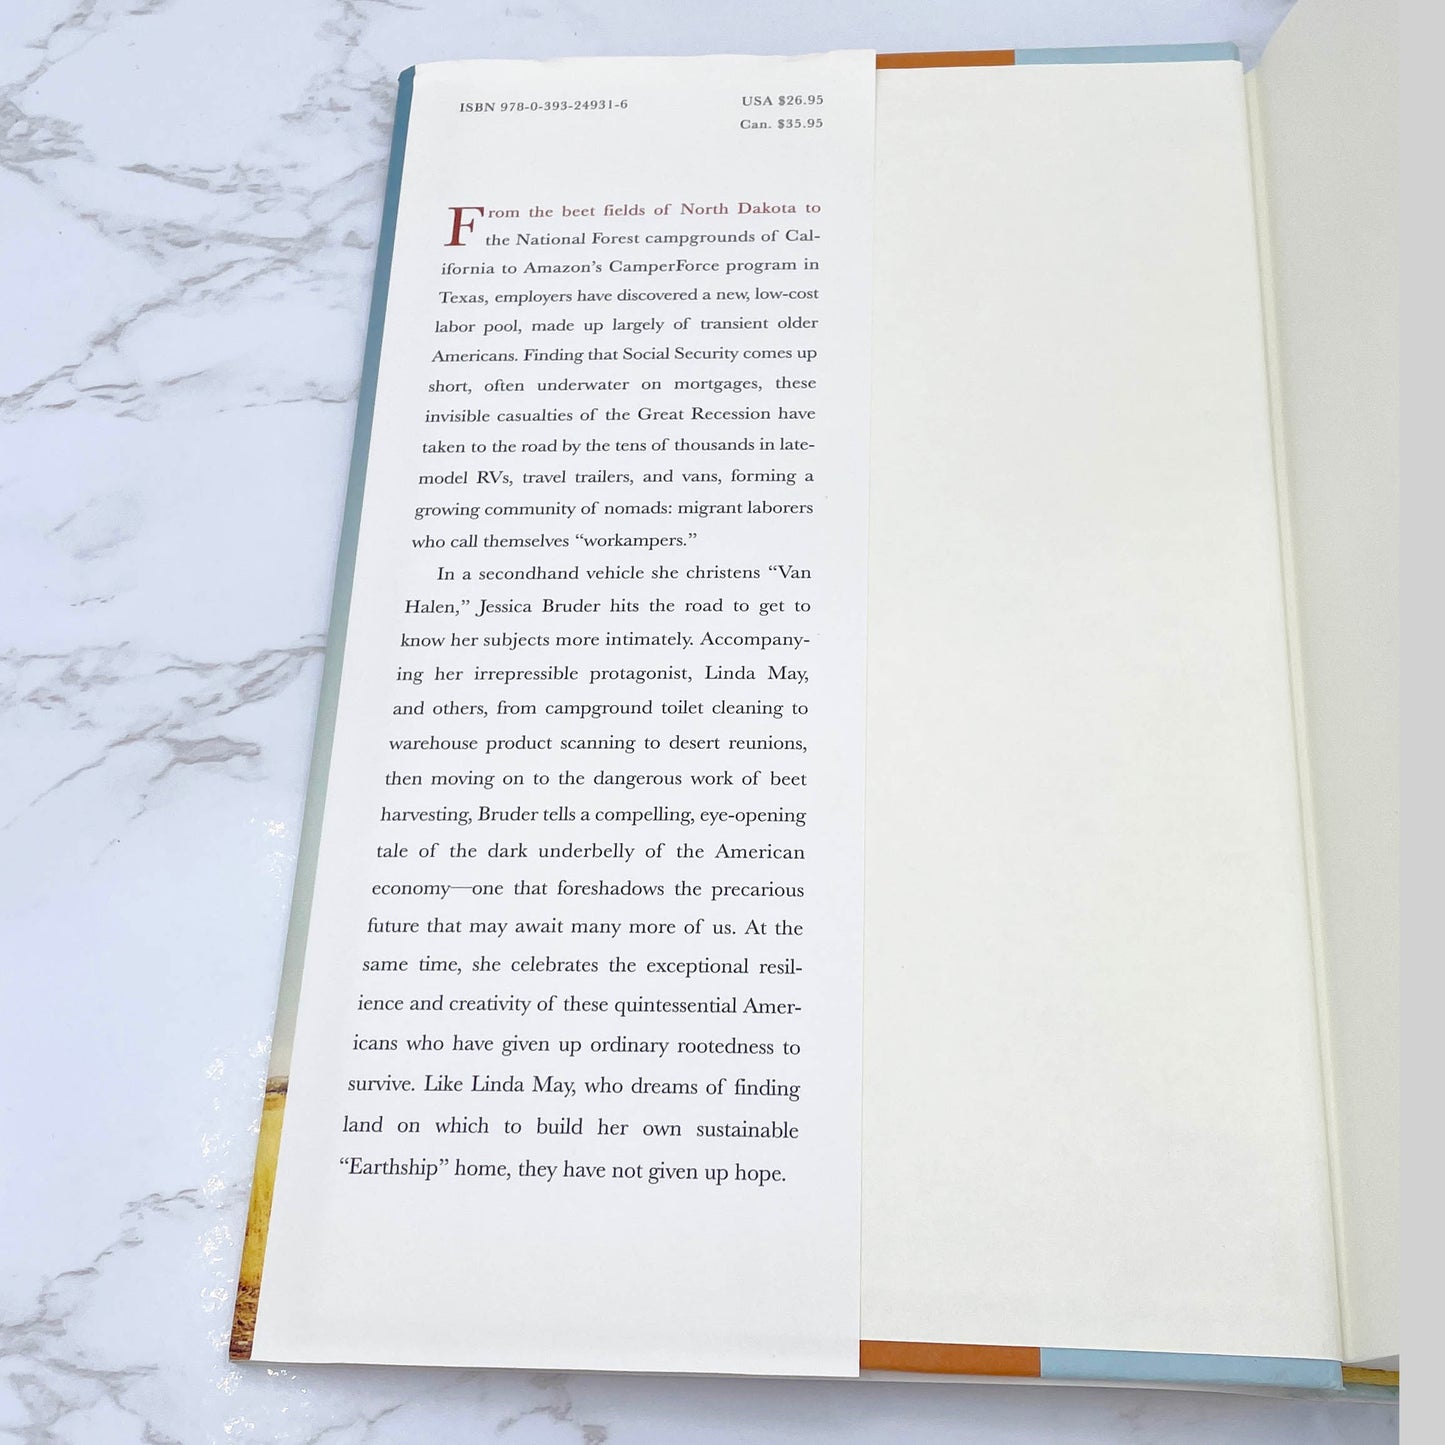 ISBN 978-0-393-24931-6
USA $26.95
Can. $35.95
From the beet fields of North Dakota to
the National Forest campgrounds of Cal-
ifornia to Amazon’s CamperForce program in
Texas, employers have discovered a new, low-cost
labor pool, made up largely of transient older
Americans. Finding that Social Security comes up
short, often underwater on mortgages, these
invisible casualties of the Great Recession have
taken to the road by the tens of thousands in late-
model RVs, travel trailers, and vans, forming a
growing community of nomads: migrant laborers
who call themselves “workampers.”
In a secondhand vehicle she christens “Van
Halen,” Jessica Bruder hits the road to get to
know her subjects more intimately. Accompany-
ing her irrepressible protagonist, Linda May,
and others, from campground toilet cleaning to
warehouse product scanning to desert reunions,
then moving on to the dangerous work of beet
harvesting, Bruder tells a compelling, eye-opening
tale of the dark underbelly of the American
economy—one that foreshadows the precarious
future that may await many more of us. At the
same time, she celebrates the exceptional resil-
ience and creativity of these quintessential Amer-
icans who have given up ordinary rootedness to
survive. Like Linda May, who dreams of finding
land on which to build her own sustainable
“Earthship” home, they have not given up hope.